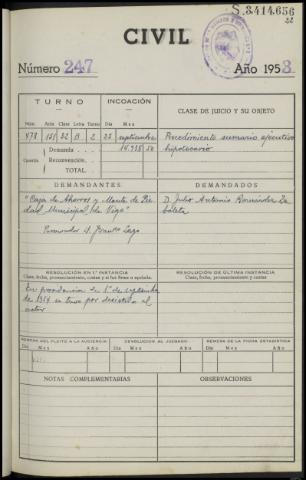 S.3414.656
22
CIVIL
Número 247 Año 1953.
TURNO INCOACIÓN CLASE DE JUICIO Y SU OBJETO
Núm. Letra Turno Día Mes
478 151 52 B 2 25 septiembre Procedimiento sumario ejecutivo
Demanda 14.938,50 hipotecario
Cuantía Reconvención.
TOTAL.
DEMANDANTES: DEMANDADOS
"Caja de Ahorros y Monte de Pie- D. Julio Antonio
dad Municipal de Vigo"
Procurador
RESOLUCIÓN EN 1.ª INSTANCIA RESOLUCIÓN DE ÚLTIMA INSTANCIA
Clase, fecha, pronunciamiento, costas y si fué firme o apelada. Clase, fecha, pronunciamiento y costas
En providencia de 1º de septiembre
de 1954 se tuvo por desistido al
actor
REMESA DEL PLEITO A LA AUDIENCIA DEVOLUCIÓN AL JUZGADO REMESA DE LA FICHA ESTADÍSTICA
Día Mes Año Día Mes Año Día Mes Año
NOTAS COMPLEMENTARIAS OBSERVACIONES